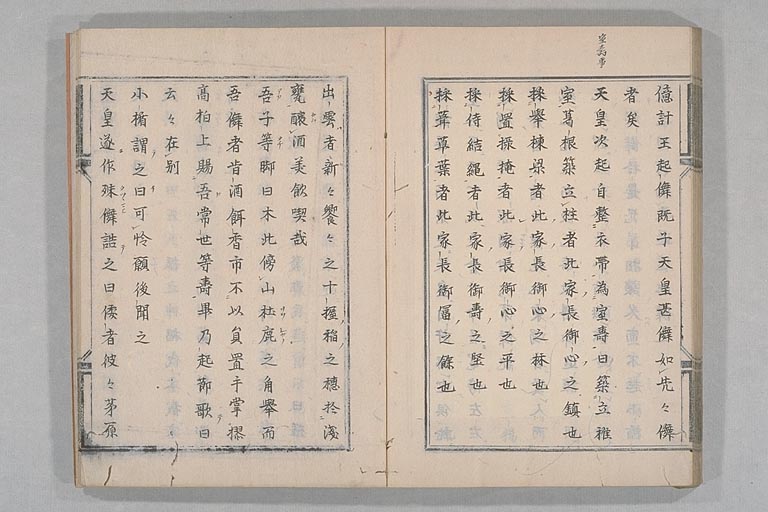 室寿事
億計王起儛既子天皇甚儛如先々儛
者矣
天皇次起自整衣帯為室壽曰築立稚
室葛根築立柱者此家長御心之鎮也
採擧棟梁者此家長御心之林也
採置掾掩者此家長御心之平也
採侍結縄者此家長御壽之堅也
採葺草葉者此家長御冨之餘也
出雲者新々饗々之十握稲之穂於淺
甕醸酒美飲喫哉
吾子等脚日木此傍山牡鹿之角擧而
吾儛者旨酒餌香市不以直置手掌摎
高拍上賜吾常世等壽畢乃起節歌曰
云々在别
小楯謂之曰可怜願復聞之
天皇遂作殊儛誥之曰倭者彼々茅原